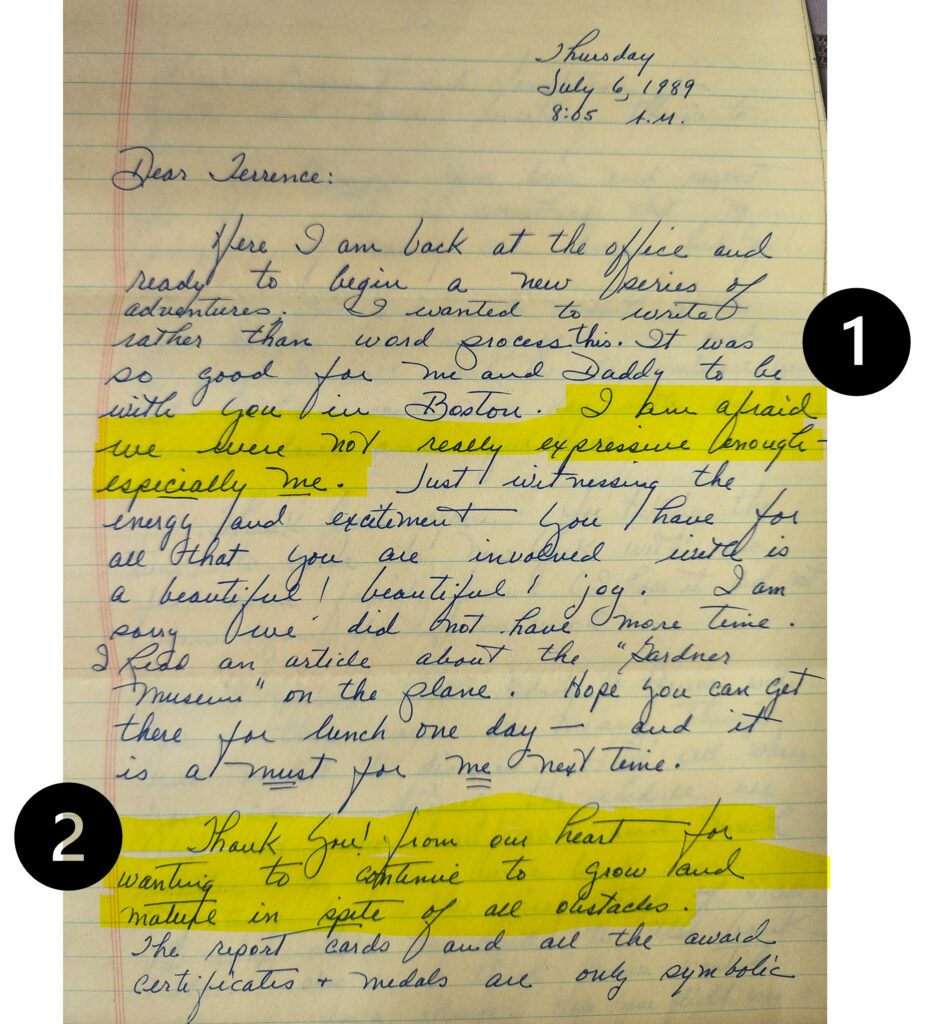 Thursday
July 6, 1989
8:05 A.M.
Dear Terrence:
Here I am back at the office and
ready to begin a new series of
adventures. I wanted to write
rather than word process this. It was
so good for me and Daddy to be
with you in Boston. I am afraid
we were not really expressive enough-
especially me. Just witnessing the
energy and excitement you have for
all that you are involved with is
a beautiful! beautiful! joy. I am
sorry we did not have more time.
I Read an article about the "Gardner
Museum" on the plane. Hope you can get
there for lunch one day — and it
is a must for me next time.
Thank You! from our heart for
wanting to continue to grow and
mature in spite of all obstacles.
The report cards and all the award
certificates + medals are only symbolic
1
2